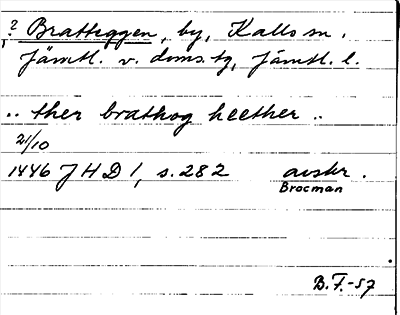 ? Bratteggen, by, Kalls sn.
Jämtl. v. doms.tg, Jämtl. l.
.. ther brathog heether ..
21/10
1446 JHD 1, s. 282 avskr.
Brocman
B.F.-57